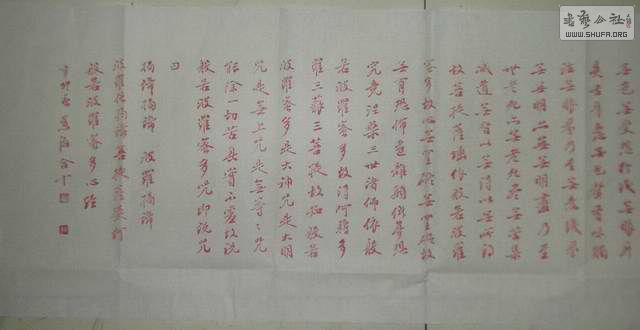 书艺公社
WWW.SHUFA.ORG
無色無受想行識無眼耳
鼻舌身意無色聲香味觸
法無眼界乃至無意識界
無無明亦無無明盡乃至
無老死亦無老死盡無苦集
滅道無智亦無得以無所得
故菩提薩埵依般若波羅
蜜多故心無罣礙無罣礙故
無有恐怖遠離顛倒夢想
究竟涅槃三世諸佛依般
若波羅蜜多故得阿耨多
羅三藐三菩提故知般若
波羅蜜多是大神咒是大明
咒是無上咒是無等等咒
能除一切苦真實不虛故說
般若波羅蜜多咒即說咒
曰
揭諦揭諦 波羅揭諦
波羅僧揭諦菩提薩婆訶
般若波羅蜜多心經